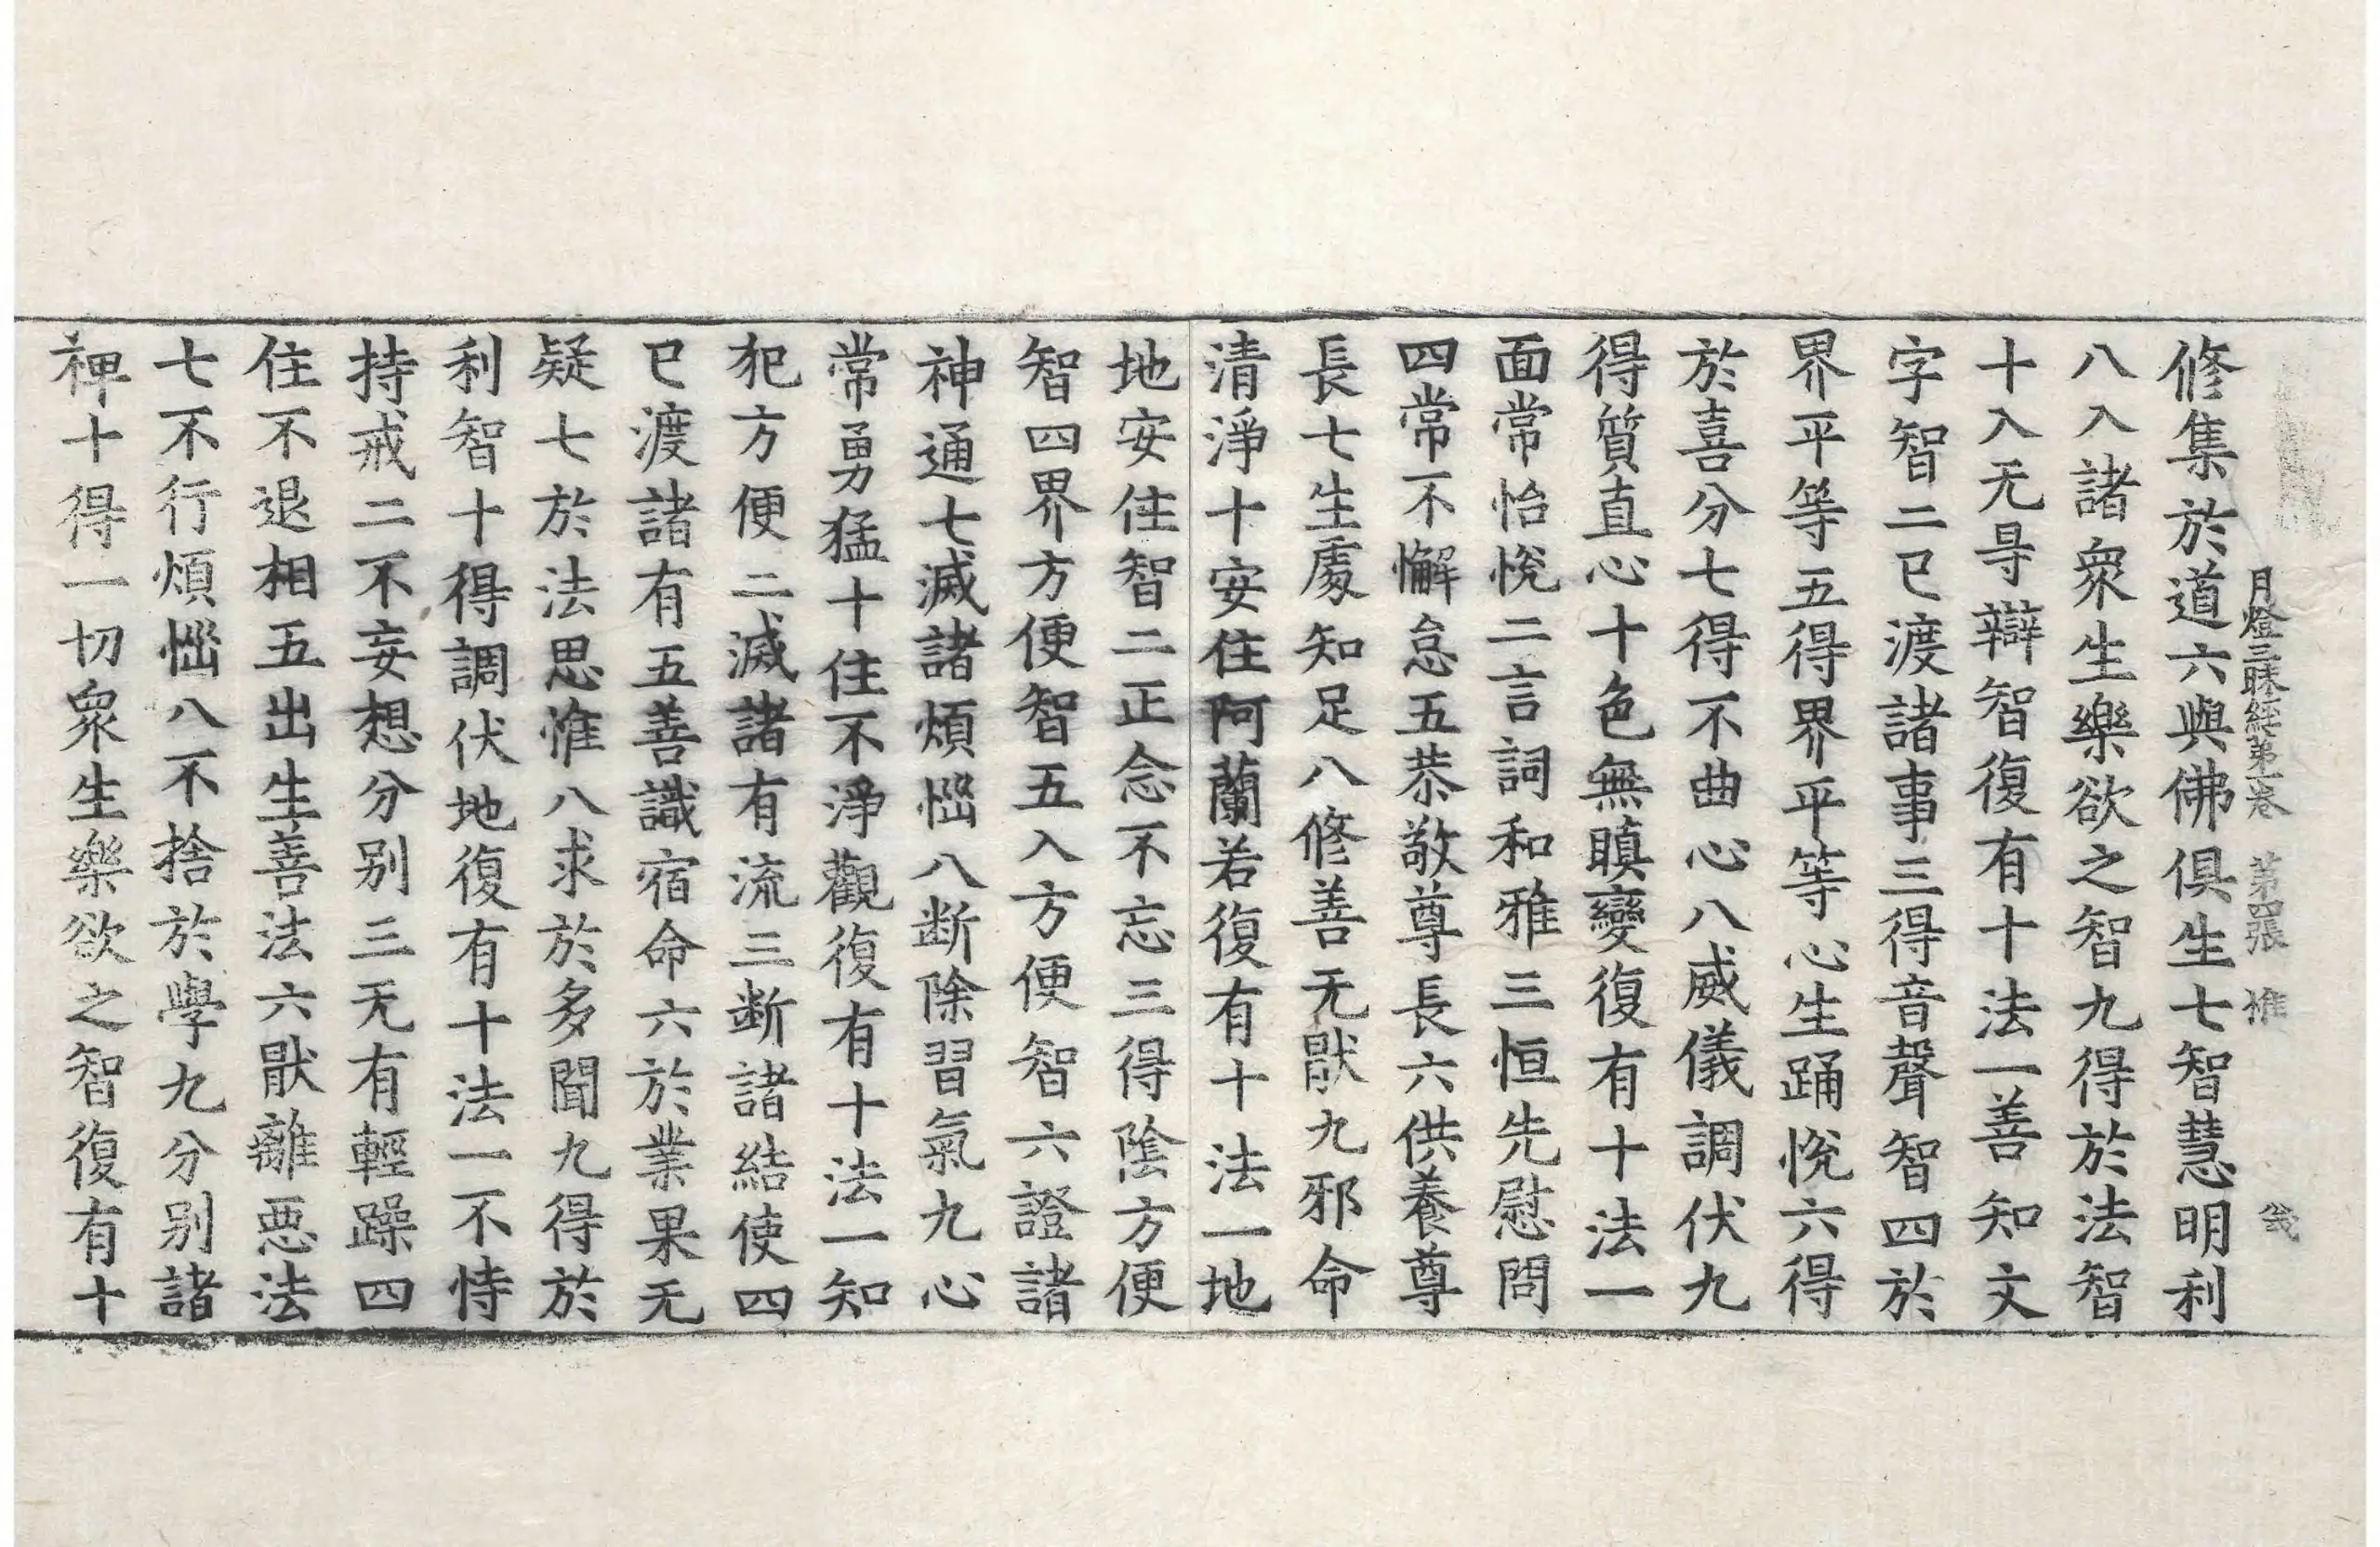 月燈三昧經第一卷 第四張 惟
修集於道六與佛俱生七智慧明利
八入諸衆生樂欲之智九得於法智
十入无㝵辯智復有十法一善知文
字智二已渡諸事三得音聲智四於
界平等五得界平等心生踊悅六得
於喜分七得不曲心八威儀調伏九
得質直心十色無瞋變復有十法一
面常怡悅二言詞和雅三恒先慰問
四常不懈怠五恭敬尊長六供養尊
長七生處知足八修善无猒九邪命
清淨十安住阿蘭若復有十法一地
地安住智二正念不忘三得陰方便
智四界方便智五入方便智六證諸
神通七滅諸煩惱八断除習氣九心
常勇猛十住不淨觀復有十法一知
犯方便二滅諸有流三断諸結使四
已渡諸有五善識宿命六於業果无
疑七於法思惟八求於多聞九得於
利智十得調伏地復有十法一不恃
持戒二不妄想分别三无有輕躁四
住不退相五出生善法六猒離惡法
七不行煩惱八不捨於學九分别諸
禅十得一切衆生樂欲之智復有十